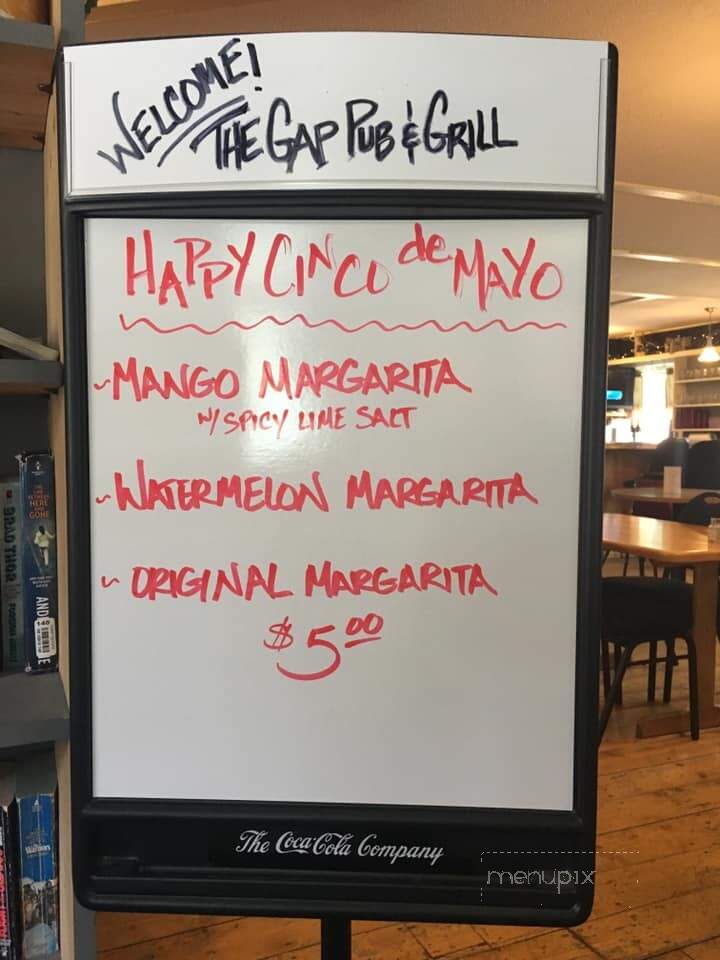 WELCOME!
THE GAP PUB & GRILL
HAPPY CINCO de MAYO
~MANGO MARGARITA
W/ SPICY LIME SALT
~WATERMELON MARGARITA
~ ORIGINAL MARGARITA
$5.00
The Coca-Cola Company
menupix
HERE
AND
GONE
BRAD THOR
AND